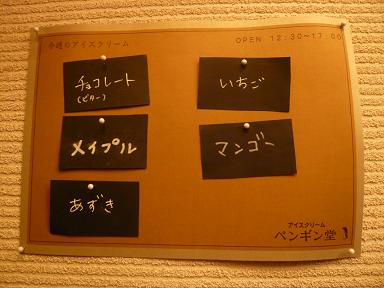 今週のアイスクリーム
OPEN 12:30~17:00
チョコレート
(ビター)
いちご
メイプル
マンゴー
あずき
アイスクリーム
ペンギン堂